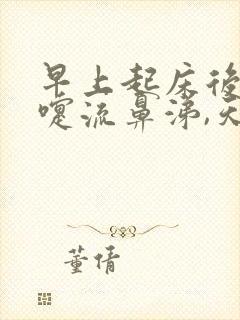 早上起床後
嚏流鼻涕,天
董倩